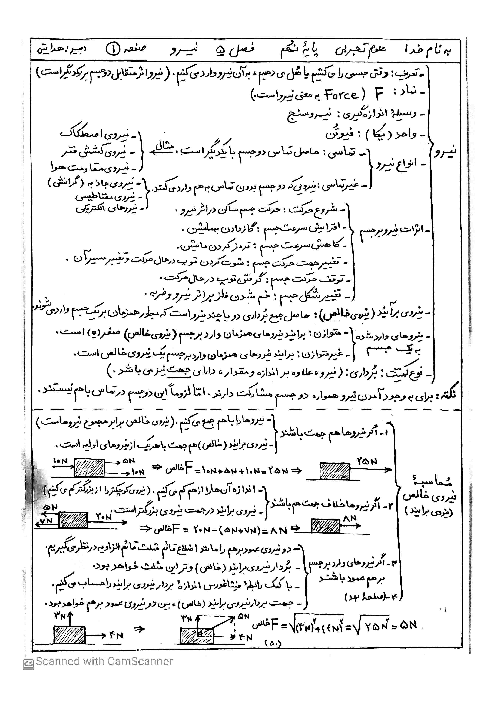 به نام خدا علوم تجربی پایهٔ نهم فصل ۵ نیرو صفحه ۱ دبیر: هدایتی
نیرو
- تعریف: وقتی جسمی را می‌کشیم یا هُل می‌دهیم، به آن نیرو وارد می‌کنیم. (نیرو اثر متقابل دو جسم بر یکدیگر است)
- نماد: F (Force به معنی نیرو است.)
- وسیلهٔ اندازه‌گیری: نیروسنج
- واحد (یکا): نیوتُن
- انواع نیرو
- تماسی: حاصل تماس دو جسم با یکدیگر است. مثال
- نیروی اصطکاک
- نیروی کششی فنر
- نیروی مقاومت هوا
- غیرتماسی: نیرویی که دو جسم بدون تماس به هم وارد می‌کنند.
- نیروی جاذبه (گرانشی)
- نیروی مغناطیسی
- نیروهای الکتریکی
- اثرات نیرو بر جسم
- شروع حرکت: حرکت جسم ساکن در اثر نیرو.
- افزایش سرعت جسم: گاز دادن به ماشین.
- کاهش سرعت جسم: ترمز کردن ماشین.
- تغییر جهت حرکت جسم: شوت کردن توپ در حال حرکت و تغییر مسیر آن.
- توقف حرکت جسم: گرفتن توپ در حال حرکت.
- تغییر شکل جسم: خم شدن فلز بر اثر نیرو و ضربه.
- نیروی برآیند (نیروی خالص): حاصل جمع بُرداری دو یا چند نیرو است که بطور همزمان بر یک جسم وارد می‌شوند.
- نیروهای وارد شده به یک جسم
- متوازن: برآیند نیروهای همزمان وارد بر جسم (نیروی خالص) صفر (۰) است.
- غیرمتوازن: برآیند نیروهای همزمان وارد بر جسم یک نیروی خالص است.
- نوع کمیّت: بُرداری: (نیرو علاوه بر اندازه و مقدار، دارای جهت نیز می‌باشد.)
نکته: برای به وجود آمدن نیرو همواره دو جسم مشارکت دارند. امّا لزوماً این دو جسم در تماس با هم نیستند.
محاسبهٔ نیروی خالص (نیروی برآیند)
۱- اگر نیروها هم جهت باشند
- نیروها را با هم جمع می‌کنیم. (نیروی خالص برابر مجموع نیروهاست)
- نیروی برآیند (خالص) هم جهت با هر یک از نیروهای اولیه است.
۱۰N ۵N ۱۰N ⇒ F خالص = ۱۰N+۵N+۱۰N=۲۵N ⇒ ۲۵N
۲- اگر نیروها خلاف جهت هم باشند
- اندازه آن‌ها را از هم کم می‌کنیم. (نیروی کوچکتر را از بزرگتر کم می‌کنیم)
- نیروی برآیند در جهت نیروی بزرگتر است.
۵N ۷N ۲۰N ⇒ F خالص = ۲۰N-(۵N+۷N)=۸N ⇒ ۸N
۳- اگر نیروهای وارد بر جسم بر هم عمود باشند
- دو نیروی عمود بر هم را مانند اضلاع قائم مثلث قائم الزاویه در نظر می‌گیریم.
- بُردار نیروی برآیند (خالص) وتر این مثلث خواهد بود.
- با کمک رابطهٔ فیثاغورس اندازهٔ بردار نیروی برآیند را حساب می‌کنیم.
- جهت بردار نیروی برآیند (خالص)، بین دو نیروی عمود بر هم خواهد بود.
۳N ۴N ⇒ ۳N ۵N ۴N F خالص = √(۳N)²+(۴N)² = √۲۵N² = ۵N
(۵۰)
CS Scanned with CamScanner